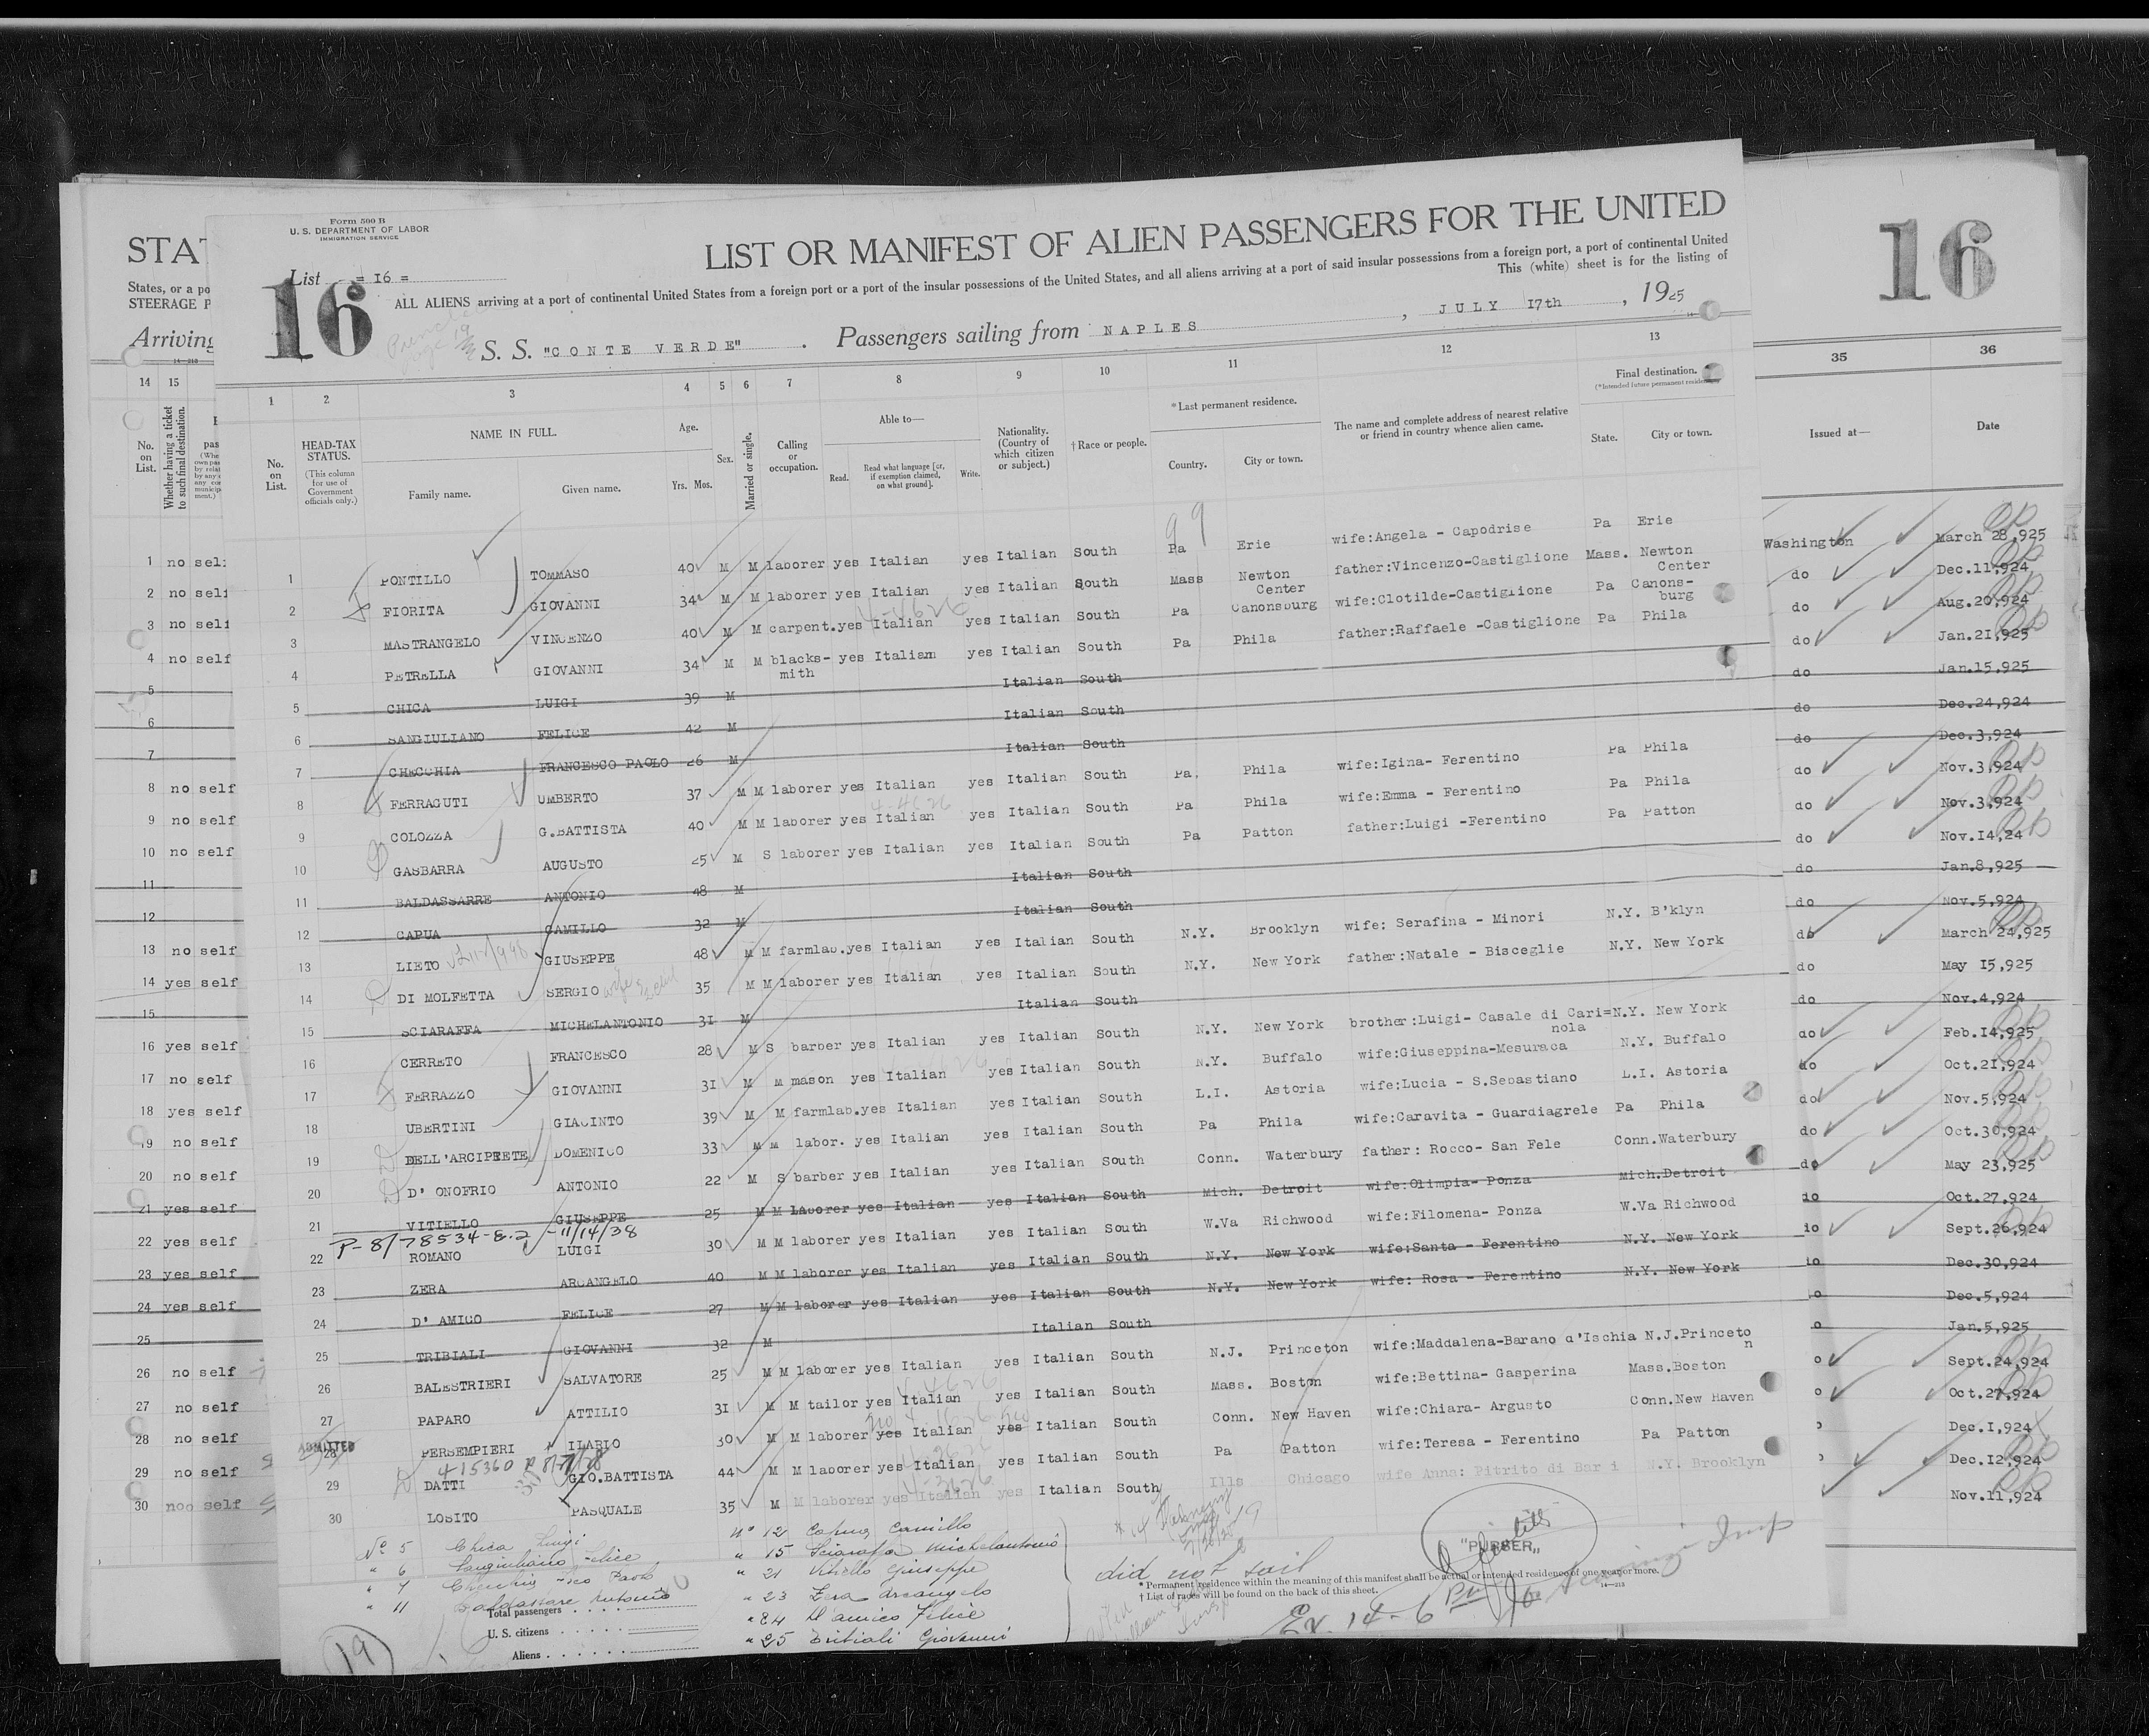 Form 500 B
U. S. DEPARTMENT OF LABOR
IMMIGRATION SERVICE
STAT
LIST OR MANIFEST OF ALIEN PASSENGERS FOR THE UNITED
16
List = 16 =
16
States, or a po
STEERAGE P
ALL ALIENS arriving at a port of continental United States from a foreign port or a port of the insular possessions of the United States, and all aliens arriving at a port of said insular possessions from a foreign port, a port of continental United
This (white) sheet is for the listing of
Arriving
S. S. "CONTE VERDE" . Passengers sailing from NAPLES , JULY 17th , 1925
14 15 1 2 3 4 5 6 7 8 9 10 11 12 13 35 36
No. on List.
Whether having a ticket to such final destination.
No. on List.
HEAD-TAX STATUS.
(This column for use of Government officials only.)
NAME IN FULL.
Family name. Given name.
Age.
Yrs. Mos.
Sex.
Married or single.
Calling or occupation.
Able to—
Read. Read what language [or, if exemption claimed, on what ground]. Write.
Nationality. (Country of which citizen or subject.)
† Race or people.
* Last permanent residence.
Country. City or town.
The name and complete address of nearest relative or friend in country whence alien came.
Final destination.
(* Intended future permanent residence)
State. City or town.
Issued at— Date
1 no self 1 PONTILLO TOMMASO 40 M M laborer yes Italian yes Italian South Pa Erie wife:Angela - Capodrise Pa Erie Washington March 28,925
2 no self 2 FIORITA GIOVANNI 34 M M laborer yes Italian yes Italian South Mass Newton Center father:Vincenzo-Castiglione Mass. Newton Center do Dec.11,924
3 no self 3 MASTRANGELO VINCENZO 40 M M carpent.yes Italian yes Italian South Pa Canonsburg wife:Clotilde-Castiglione Pa Canons-burg do Aug.20,924
4 no self 4 PETRELLA GIOVANNI 34 M M blacks-mith yes Italian yes Italian South Pa Phila father:Raffaele -Castiglione Pa Phila do Jan.21,925
5 5 CHICA LUIGI 39 M Italian South do Jan.15,925
6 6 SANGIULIANO FELICE 42 M Italian South do Dec.24,924
7 7 CHECCHIA FRANCESCO PAOLO 26 M Italian South do Dec.3,924
8 no self 8 FERRAGUTI UMBERTO 37 M M laborer yes Italian yes Italian South Pa. Phila wife:Igina- Ferentino Pa Phila do Nov.3,924
9 no self 9 COLOZZA G.BATTISTA 40 M M laborer yes Italian yes Italian South Pa Phila wife:Emma - Ferentino Pa Phila do Nov.3,924
10 no self 10 GASBARRA AUGUSTO 25 M S laborer yes Italian yes Italian South Pa Patton father:Luigi -Ferentino Pa Patton do Nov.14,24
11 11 BALDASSARRE ANTONIO 48 M Italian South do Jan.8,925
12 12 CAPUA CAMILLO 32 M Italian South do Nov.5,924
13 no self 13 LIETO GIUSEPPE 48 M M farmlab.yes Italian yes Italian South N.Y. Brooklyn wife: Serafina - Minori N.Y. B'klyn do March 24,925
14 yes self 14 DI MOLFETTA SERGIO 35 M M laborer yes Italian yes Italian South N.Y. New York father:Natale - Bisceglie N.Y. New York do May 15,925
15 15 SCIARAFFA MICHELANTONIO 31 M Italian South do Nov.4,924
16 yes self 16 CERRETO FRANCESCO 28 M S barber yes Italian yes Italian South N.Y. New York brother:Luigi- Casale di Cari=nola N.Y. New York do Feb.14,925
17 no self 17 FERRAZZO GIOVANNI 31 M M mason yes Italian yes Italian South N.Y. Buffalo wife:Giuseppina-Mesuraca N.Y. Buffalo do Oct.21,924
18 yes self 18 UBERTINI GIACINTO 39 M M farmlab.yes Italian yes Italian South L.I. Astoria wife:Lucia - S.Sebastiano L.I. Astoria do Nov.5,924
19 no self 19 DELL'ARCIPRETE DOMENICO 33 M M labor. yes Italian yes Italian South Pa Phila wife:Caravita - Guardiagrele Pa Phila do Oct.30,924
20 no self 20 D' ONOFRIO ANTONIO 22 M S barber yes Italian yes Italian South Conn. Waterbury father: Rocco- San Fele Conn.Waterbury do May 23,925
21 yes self 21 VITIELLO GIUSEPPE 25 M M Laborer yes Italian yes Italian South Mich. Detroit wife:Olimpia- Ponza Mich.Detroit do Oct.27,924
P-8/78534-8.2 -11/14/38
22 yes self 22 ROMANO LUIGI 30 M M laborer yes Italian yes Italian South W.Va Richwood wife:Filomena- Ponza W.Va Richwood do Sept.26,924
23 yes self 23 ZERA ARCANGELO 40 M M laborer yes Italian yes Italian South N.Y. New York wife:Santa - Ferentino N.Y. New York do Dec.30,924
24 yes self 24 D' AMICO FELICE 27 M M laborer yes Italian yes Italian South N.Y. New York wife: Rosa - Ferentino N.Y. New York o Dec.5,924
25 25 TRIBIALI GIOVANNI 32 M Italian South o Jan.5,925
26 no self 26 BALESTRIERI SALVATORE 25 M M laborer yes Italian yes Italian South N.J. Princeton wife:Maddalena-Barano d'Ischia N.J.Princeton o Sept.24,924
27 no self 27 PAPARO ATTILIO 31 M M tailor yes Italian yes Italian South Mass. Boston wife:Bettina- Gasperina Mass.Boston o Oct.27,924
28 no self ADMITTED 28 PERSEMPIERI ILARIO 30 M M laborer yes Italian yes Italian South Conn. New Haven wife:Chiara- Argusto Conn.New Haven Dec.1,924
415360
29 no self 29 DATTI GIO.BATTISTA 44 M M laborer yes Italian yes Italian South Pa Patton wife:Teresa - Ferentino Pa Patton Dec.12,924
30 noo self 30 LOSITO PASQUALE 35 M M laborer yes Italian yes Italian South Ills Chicago wife Anna: Pitrito di Bari N.Y. Brooklyn Nov.11,924
No 5 Chica Luigi
" 6 Sangiuliano Felice
" 7 Checchia Fsco Paolo
" 11 Baldassare Antonio
No 12 Capua Camillo
" 15 Sciaraffa Michelantonio
" 21 Vitiello Giuseppe
" 23 Zera Arcangelo
" 24 D'amico Felice
" 25 Tribiali Giovanni
did not sail
"PURSER"
* Permanent residence within the meaning of this manifest shall be actual or intended residence of one year or more.
† List of races will be found on the back of this sheet.
14—213
Total passengers
U. S. citizens
Aliens
19
Ex. 14-6